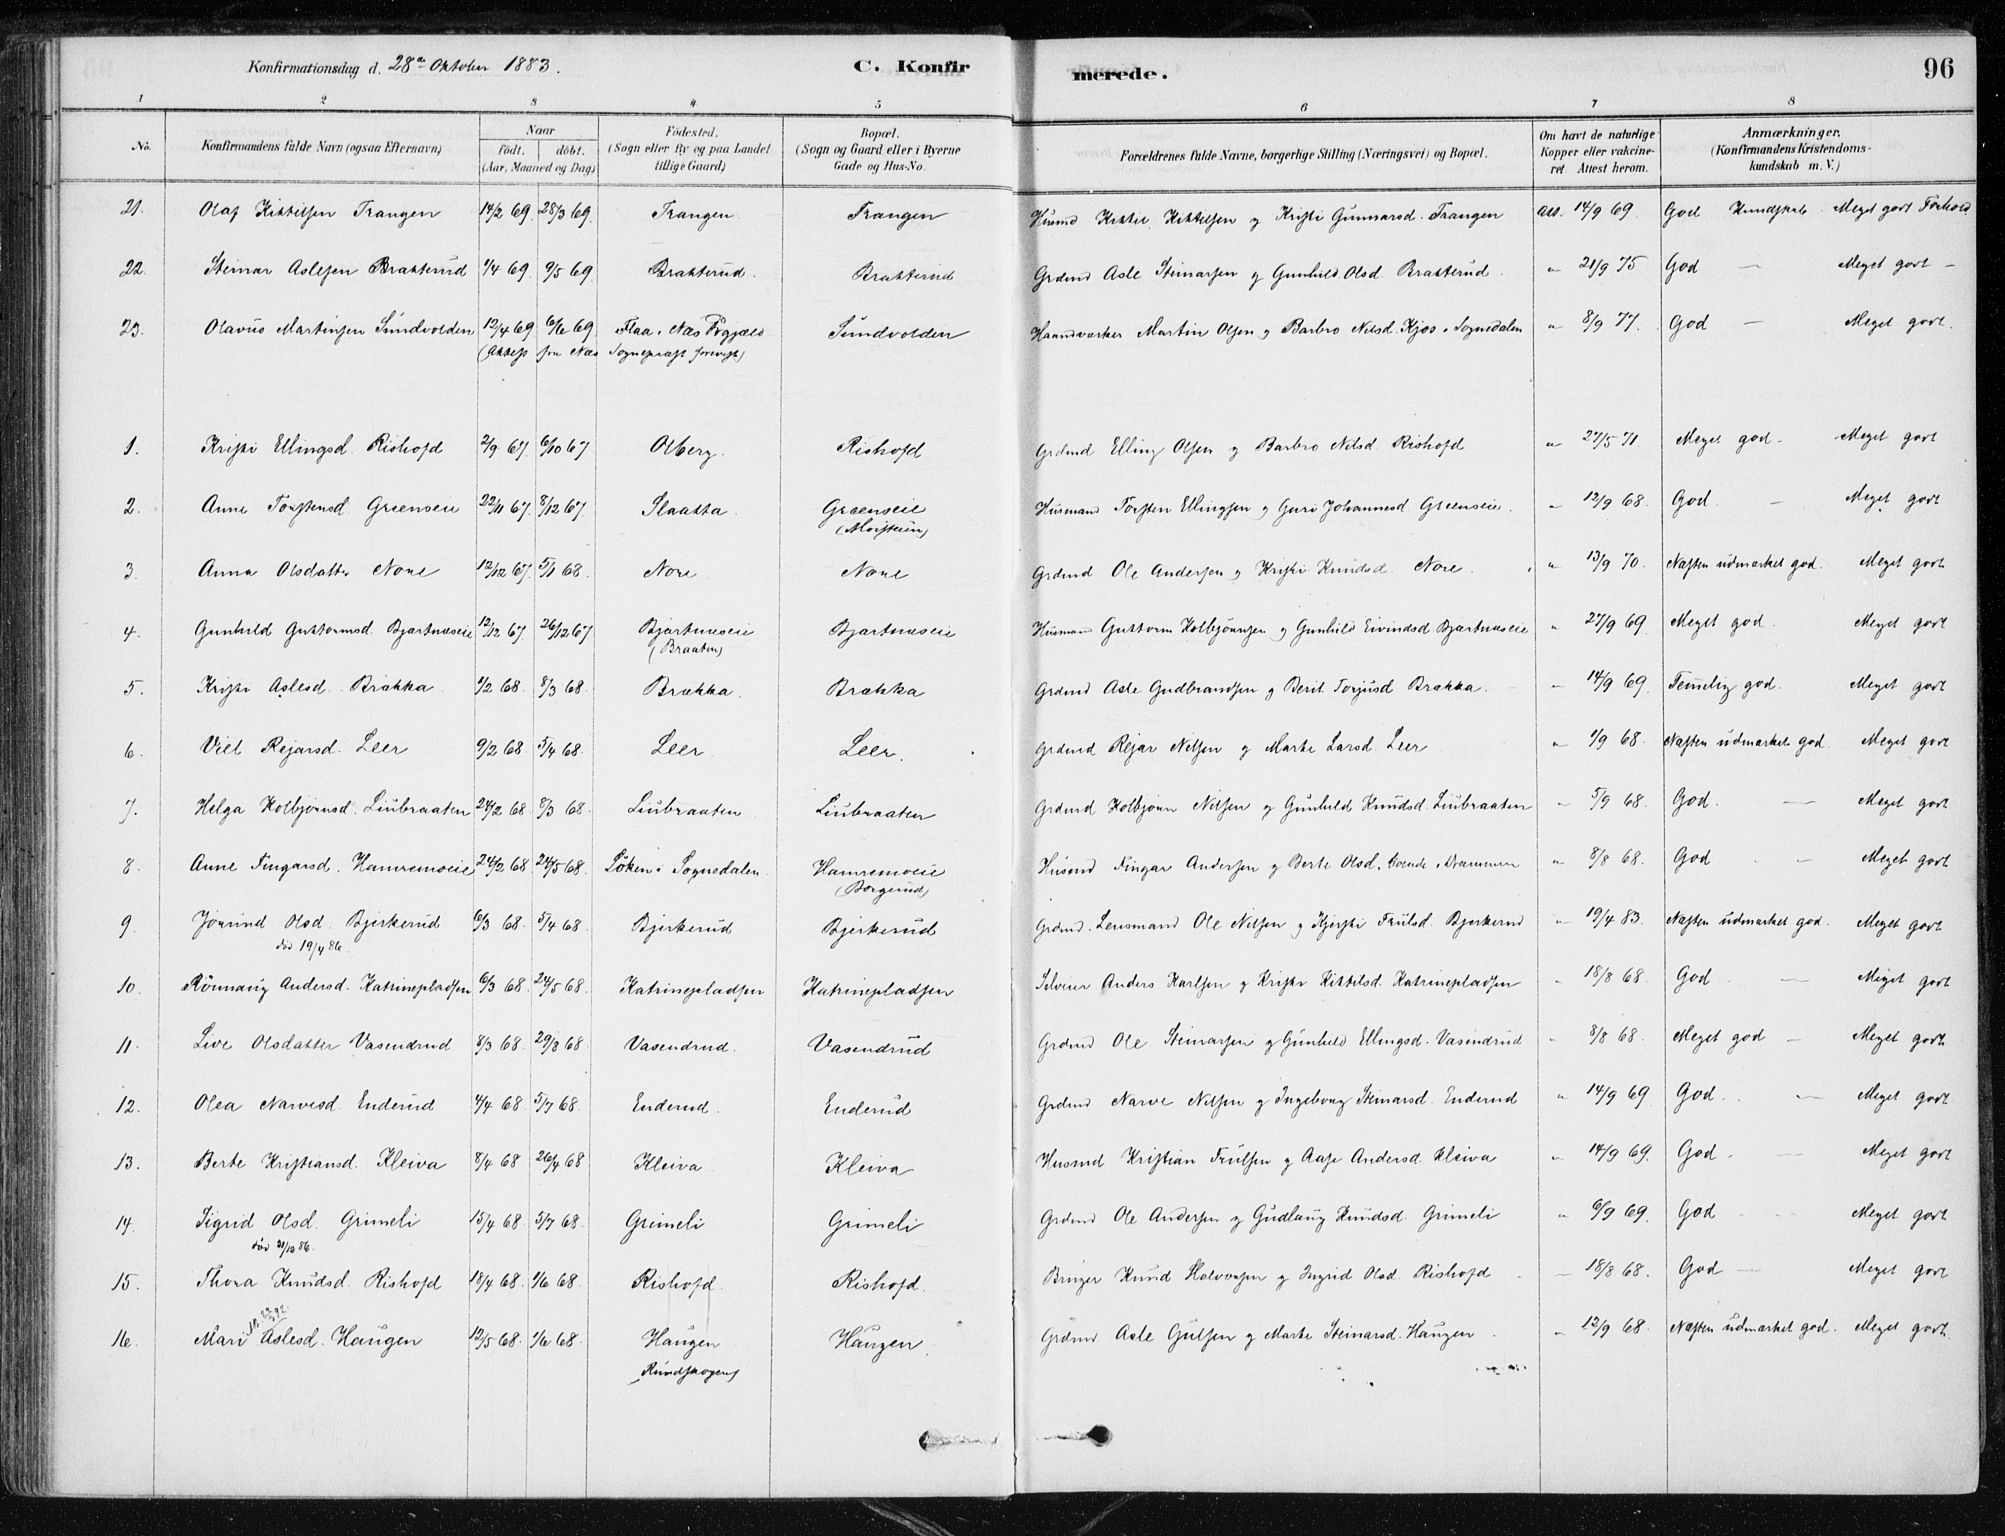 Konfirmationsdag d. 28de Oktober 1883. C. Konfirmerede. 96
1 2 3 4 5 6 7 8
No. Konfirmandens fulde Navn (ogsaa Efternavn) Naar født. døbt. (Aar, Maaned og Dag) Fødested. (Sogn eller By og paa Landet tillige Gaard) Bopæl. (Sogn og Gaard eller i Byerne Gade og Hus-No. Forældrenes fulde Navne, borgerlige Stilling (Næringsvei) og Bopæl. Om havt de naturlige Kopper eller vakcineret. Attest herom. Anmærkninger. (Konfirmandens Kristendomskundskab m. V.)
21. Olaf Kittilsen Trangen 14/2 69. 28/3 69. Trangen. Trangen Husmd Kittil Kittilsen og Kristi Gunnarsd. Trangen Att. 14/9 69. God Kundskab. Meget godt Forhold
22. Steinar Aslesen Brakterud 1/4 69. 9/5 69. Brakterud. Brakterud Grdmd Asle Steinarsen og Gunhild Olsd. Brakterud. " 21/9 75 God — Meget godt —
23. Olavus Martinsen Sundvolden 12/4 69. 6/6 69. Flaa i Næs Prgjæld Sundvolden Haandværker Martin Olsen og Barbro Nilsd. Kjos i Sognedalen " 8/9 77. God — Meget godt.
(Attest fra Næs Sognepræst forevist)
1. Kristi Ellingsd. Rishofd 2/9 67. 6/10 67 Olberg. Rishofd Grdmd Elling Olsen og Barbro Nilsd. Rishofd " 27/5 71 Meget god. Meget godt
2. Anne Torstensd Greenseie 22/11 67. 8/12 67. Slaatta. Greenseie Husmand Torsten Ellingsen og Guri Johannesd Greenseie. " 12/9 68. God. — Meget godt
3. Anna Olsdatter Nore 12/12 67. 5/1 68. Nore Nore Grdmd Ole Andersen og Kristi Knudsd. Nore. " 13/9 70. Næsten udmærket god. Meget godt
4. Gunhild Guttormsd. Bjørtnæseie 12/12 67. 26/12 67. Bjørtnæseie Bjørtnæseie Husmand Guttorm Kolbjørnsen og Gunhild Eivindsd Bjørtnæseie " 27/9 69. Meget god. Meget godt
(Braaten)
5. Kristi Aslesd. Brække 1/2 68. 8/3 68. Brækka. Brækka Grdmd Asle Gudbrandsen og Berit Torjusd Brækka. " 14/9 69. Temelig god. Meget godt
6. Viel Rejarsd. Leer 9/2 68. 5/4 68. Leer. Leer. Grdmd Rejar Nilsen og Marte Larsd. Leer " 1/9 68. Næsten udmærket god. Meget godt
7. Helga Kolbjørnsd. Liubraaten 24/2 68 8/3 68. Liubraaten Liubraaten Grdmd Kolbjørn Nilsen og Gunhild Knudsd. Liubraaten " 5/9 68. God. — Meget godt
8. Anne Fingarsd. Hamremoeie 24/2 68 24/5 68. Løken i Sognedalen. Hamremoeie Husmd Fingar Andersen og Berte Olsd. boende i Drammen " 8/8 68. God — Meget godt
(Borgerud)
9. Jørund Olsd. Bjerkerud 6/3 68. 5/4 68. Bjerkerud Bjerkerud Grdmd. Lensmand Ole Nilsen og Kjersti Trulsd. Bjerkerud " 19/4 83. Næsten udmærket god. Meget godt
død 19/4 86.
10. Rønnaug Andersd. Katrinepladsen 6/3 68. 24/5 68. Katrinepladsen Katrinepladsen Selveier Anders Karlsen og Kristi Kittilsd. Katrinepladsen " 18/8 68. God — Meget godt
11. Live Olsdatter Vasendrud 8/3 68. 29/3 68. Vasendrud. Vasendrud Grdmd Ole Steinarsen og Gunhild Ellingsd. Vasendrud " 8/8 68. Meget god — Meget godt.
12. Olea Narvesd. Enderud 4/4 68. 5/7 68. Enderud. Enderud Grdmd Narve Nilsen og Ingeborg Steinarsd. Enderud " 14/9 69. God. — Meget godt.
13. Berte Kristiansd. Kleiva 8/4 68 26/4 68 Kleiva Kleiva Husmd Kristian Trulsen og Aase Andersd. Kleiva " 14/9 69. God. — Meget godt
14. Sigrid Olsd. Grimeli 15/4 68. 5/7 68. Grimeli Grimeli Grdmd Ole Andersen og Gudlaug Knudsd. Grimeli " 6/9 69. God Meget godt
død 21/10 86.
15. Thora Knudsd. Rishofd 18/4 68. 1/6 68. Rishofd Rishofd. Bruger Knud Halvorsen og Ingrid Olsd. Rishofd — 18/8 68. God — Meget godt
16. Mari Aslesd. Haugen 12/5 68. 1/6 68. Haugen Haugen Grdmd Asle Gulsen og Marte Steinarsd. Haugen " 12/9 68. Næsten udmærket god. Meget godt.